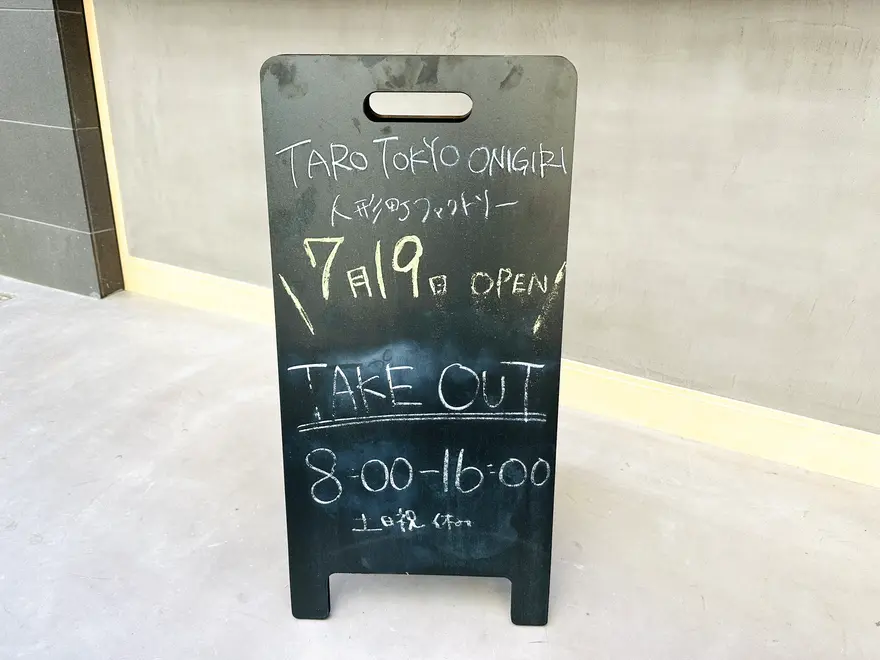 TARO TOKYO ONIGIRI
人形町ファクトリー
7月19日 OPEN
TAKE OUT
8:00-16:00
土日祝 休み